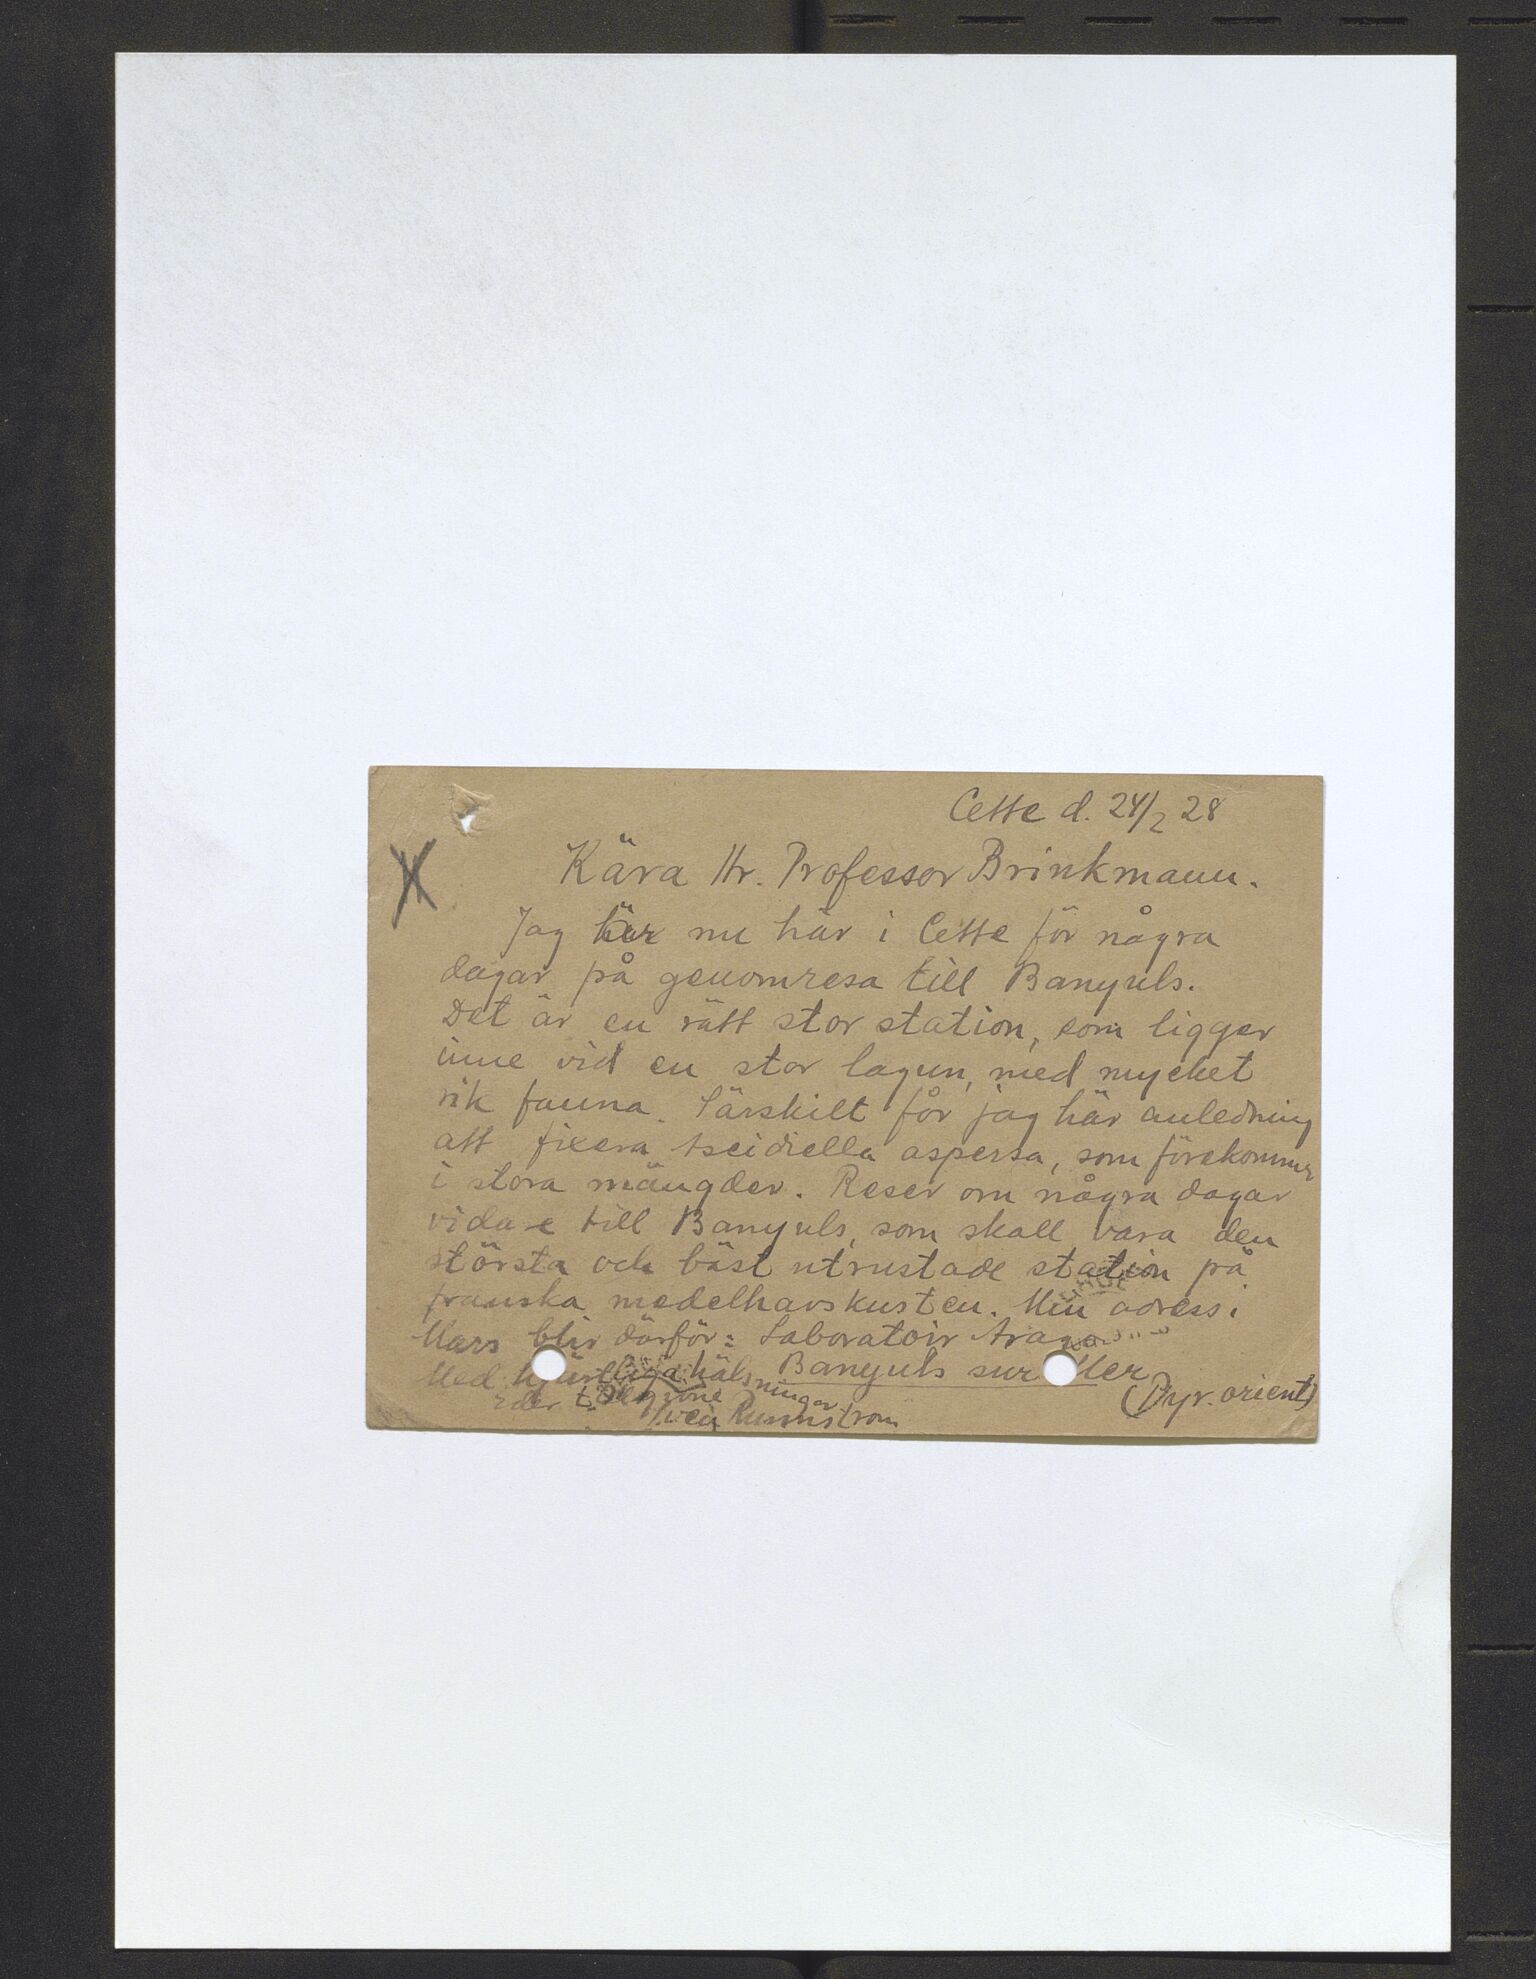 Cette d. 24/2 28
Kära Hr. Professor Brinkmann.
Jag är nu här i Cette för några
dagar på genomresa till Banyuls.
Det är en rätt stor station, som ligger
inne vid en stor lagun, med mycket
rik fauna. Särskilt får jag här anledning
att fixera Ascidiella aspersa, som förekommer
i stora mängder. Reser om några dagar
vidare till Banyuls, som skall vara den
största och bäst utrustade station på
franska medelhavskusten. Min adress i
Mars blir därför: Laboratoir Arago
Banyuls sur Mer
(Pyr. orient)
Med hjärtliga hälsningar
Eder tillgivne
Sven Runnström